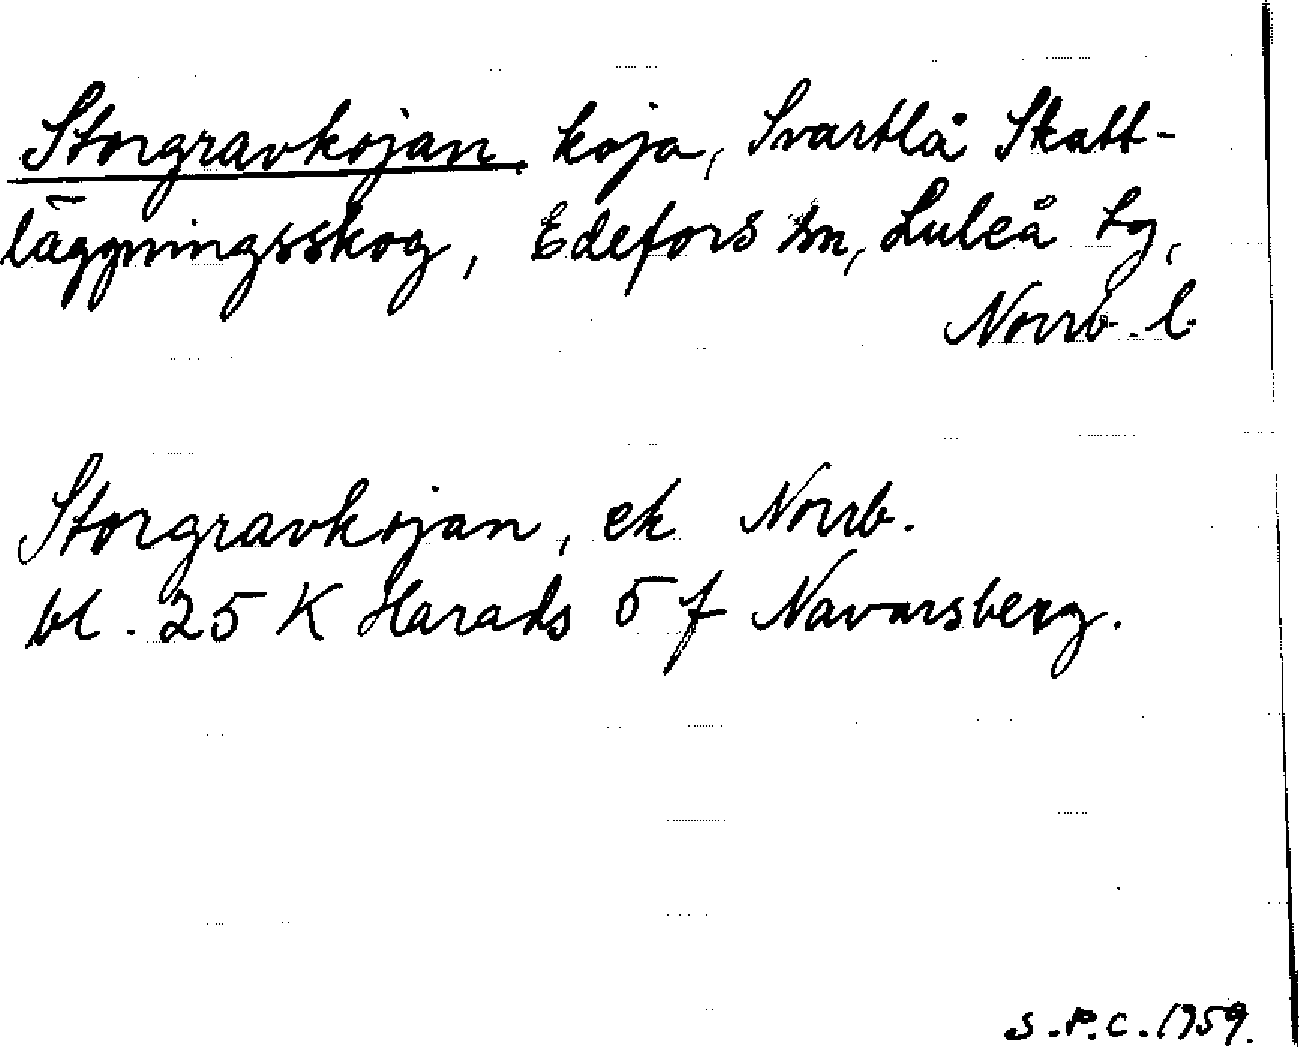 Storgravkojan, koja, Svartlå Skatt-
läggningsskog, Edefors sn, Luleå tg,
Norrb. l.
Storgravkojan, ek Norrb.
bl. 25 K Harads 5 f Navarsberg.
S.P.C. 1959.